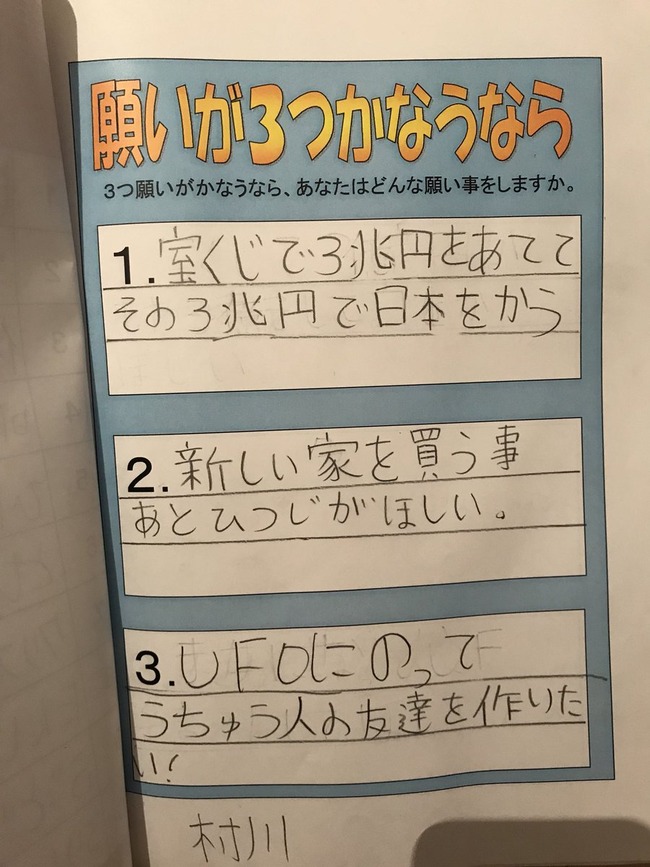 願いが3つかなうなら
3つ願いがかなうなら、あなたはどんな願い事をしますか。
1.宝くじで3兆円をあてて
その3兆円で日本をから
2.新しい家を買う事
あとひつじがほしい。
3.UFOにのって
うちゅう人の友達を作りた
い!
村川